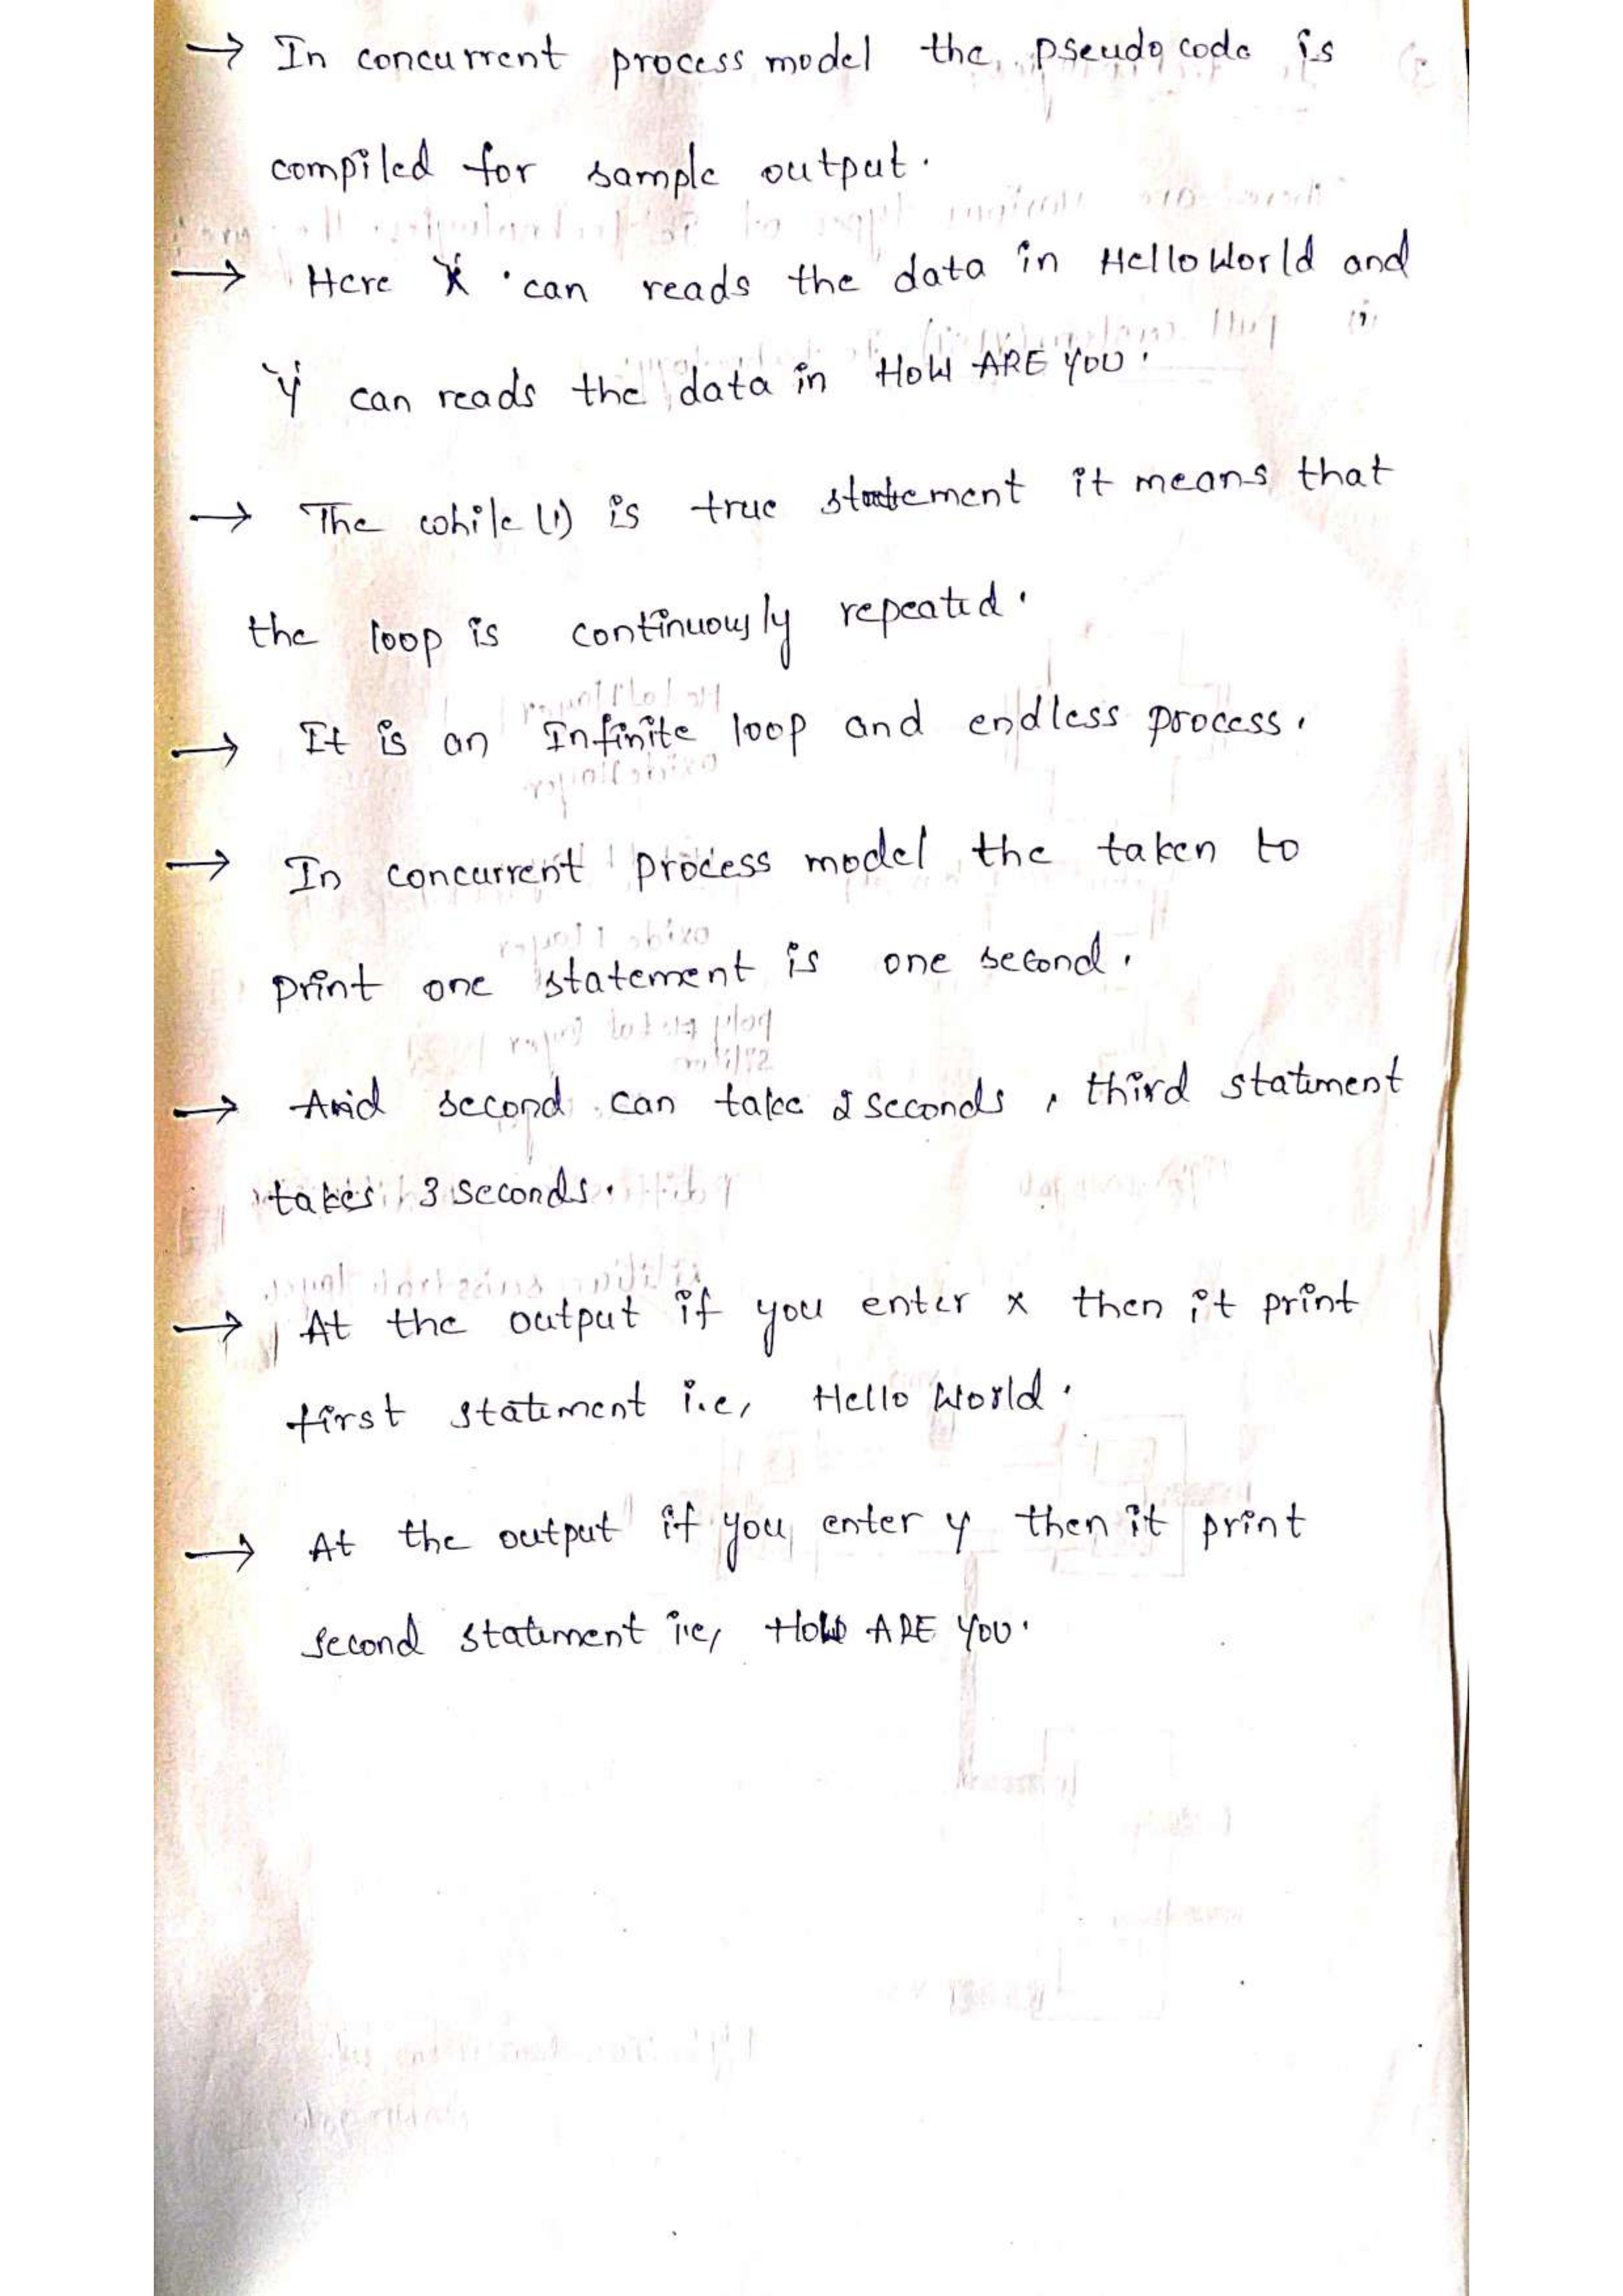 → In concurrent process model the pseudo code is
compiled for sample output.
→ Here 'X' can reads the data in Hello World and
'Y' can reads the data in HOW ARE YOU.
→ The while (1) is true statement it means that
the loop is continuously repeated.
→ It is an Infinite loop and endless process.
→ In concurrent process model the taken to
print one statement is one second.
→ And second can take 2 seconds, third statement
takes 3 seconds.
→ At the output if you enter x then it print
first statement i.e, Hello World.
→ At the output if you enter y then it print
second statement i.e, HOW ARE YOU.